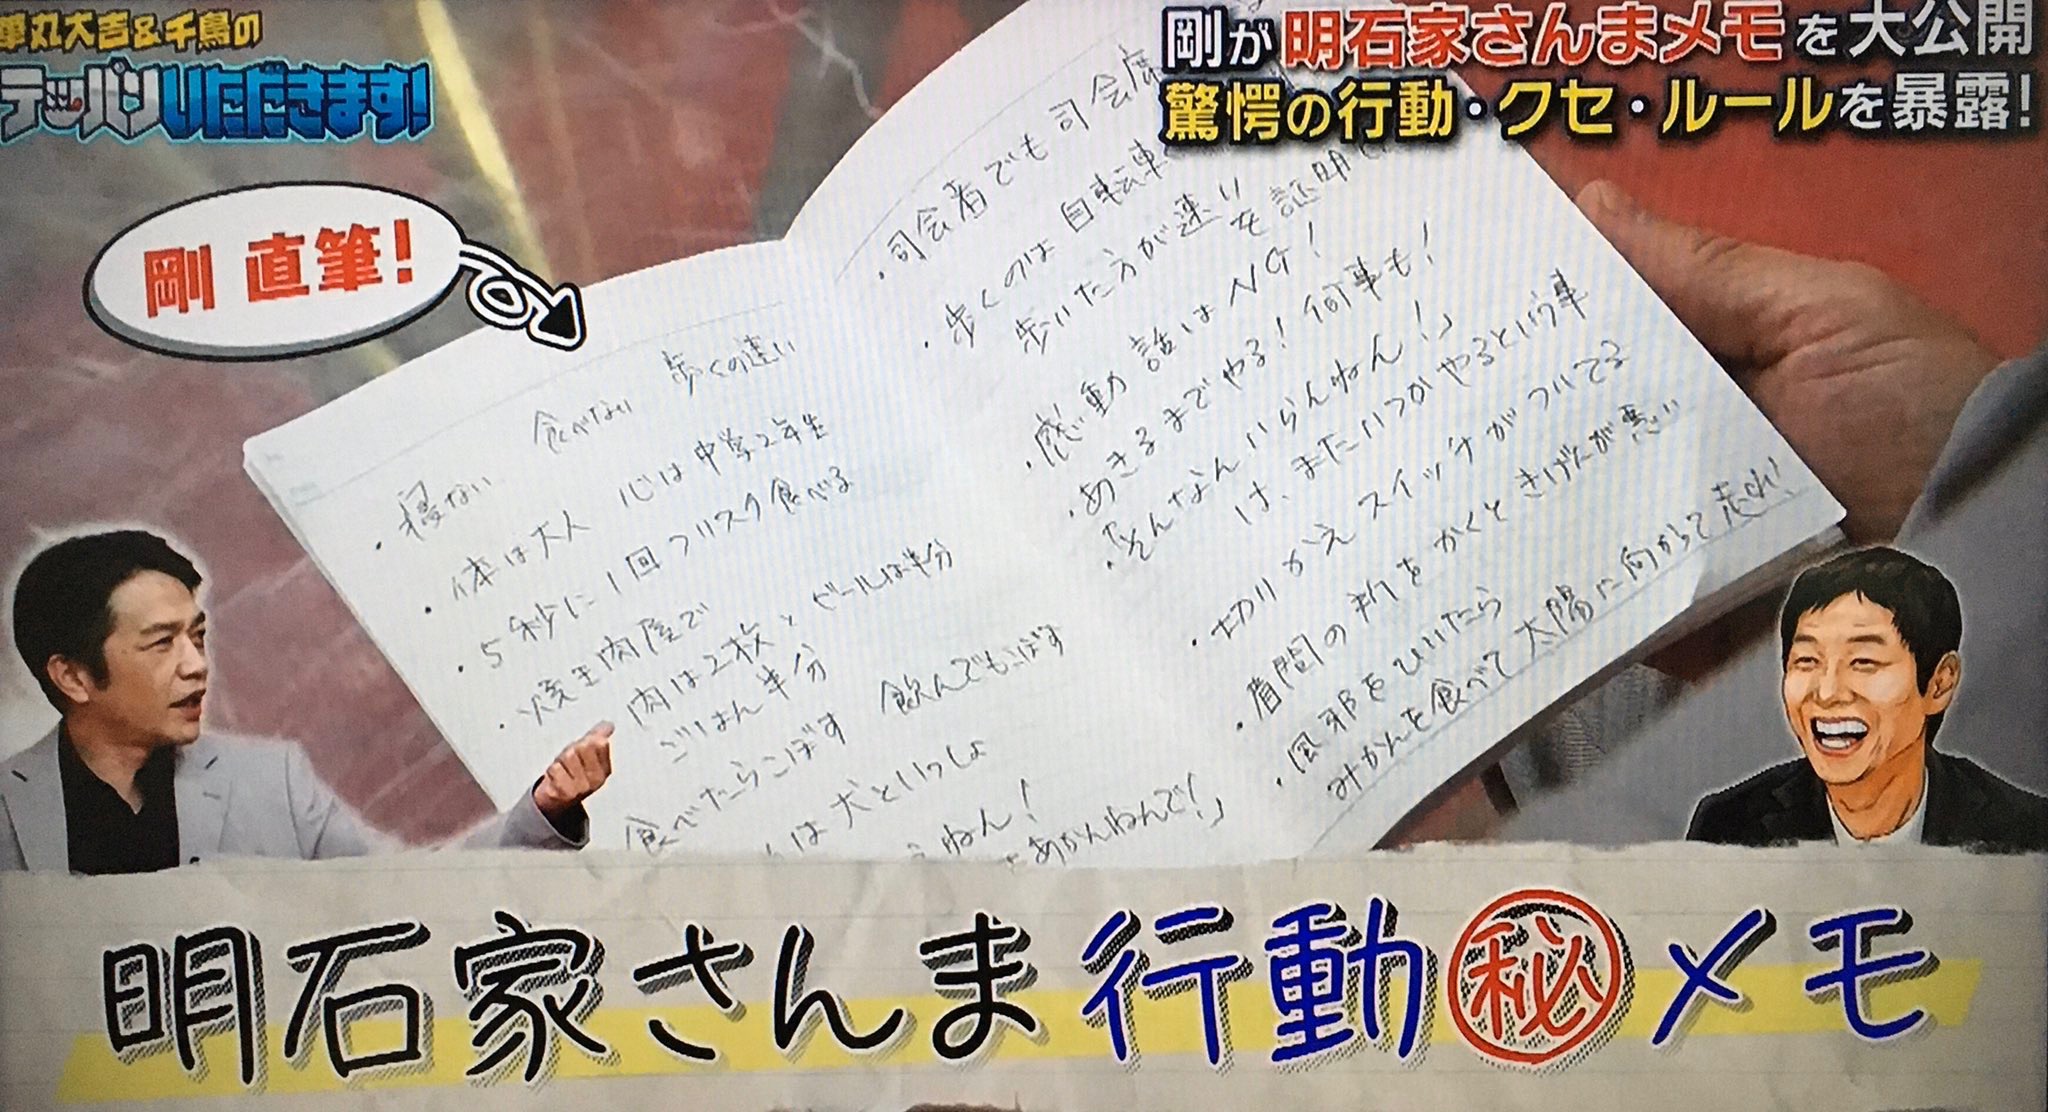 華丸大吉&千鳥の
テッパンいただきます!
剛が明石家さんまメモを大公開
驚愕の行動・クセ・ルールを暴露!
剛 直筆!
・寝ない 食べない 歩くの速い
・体は大人 心は中学2年生
・5秒に1回フリスク食べる
・焼き肉屋で
肉は2枚とビールは半分
ごはん半分
食べたらこぼす 飲んでもこぼす
は犬といっしょ
ねん!
あかんねんで!」
・司会者でも司会席
・歩くのは自転車
歩いた方が速い
を証明
・感動話はNG!
・あきるまでやる!何事も!
・「そんなんいらんねん!」
は、またいつかやるという事
・切りかえスイッチがついてる
・質問の所をかくときげんが悪い
・風邪をひいたら
みかんを食べて太陽に向かって走れ!
明石家さんま行動㊙メモ